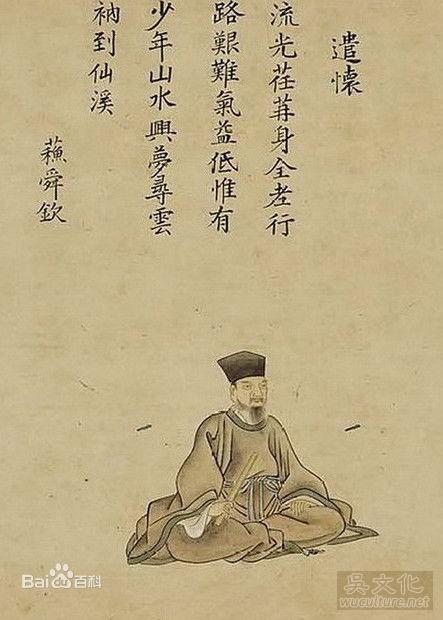 遣懷
流光荏苒身全老行
路艱難氣益低惟有
少年山水興夢尋雲
衲到仙溪
蘓舜欽
Bai du 百科
吳文化
www.wuculture.net